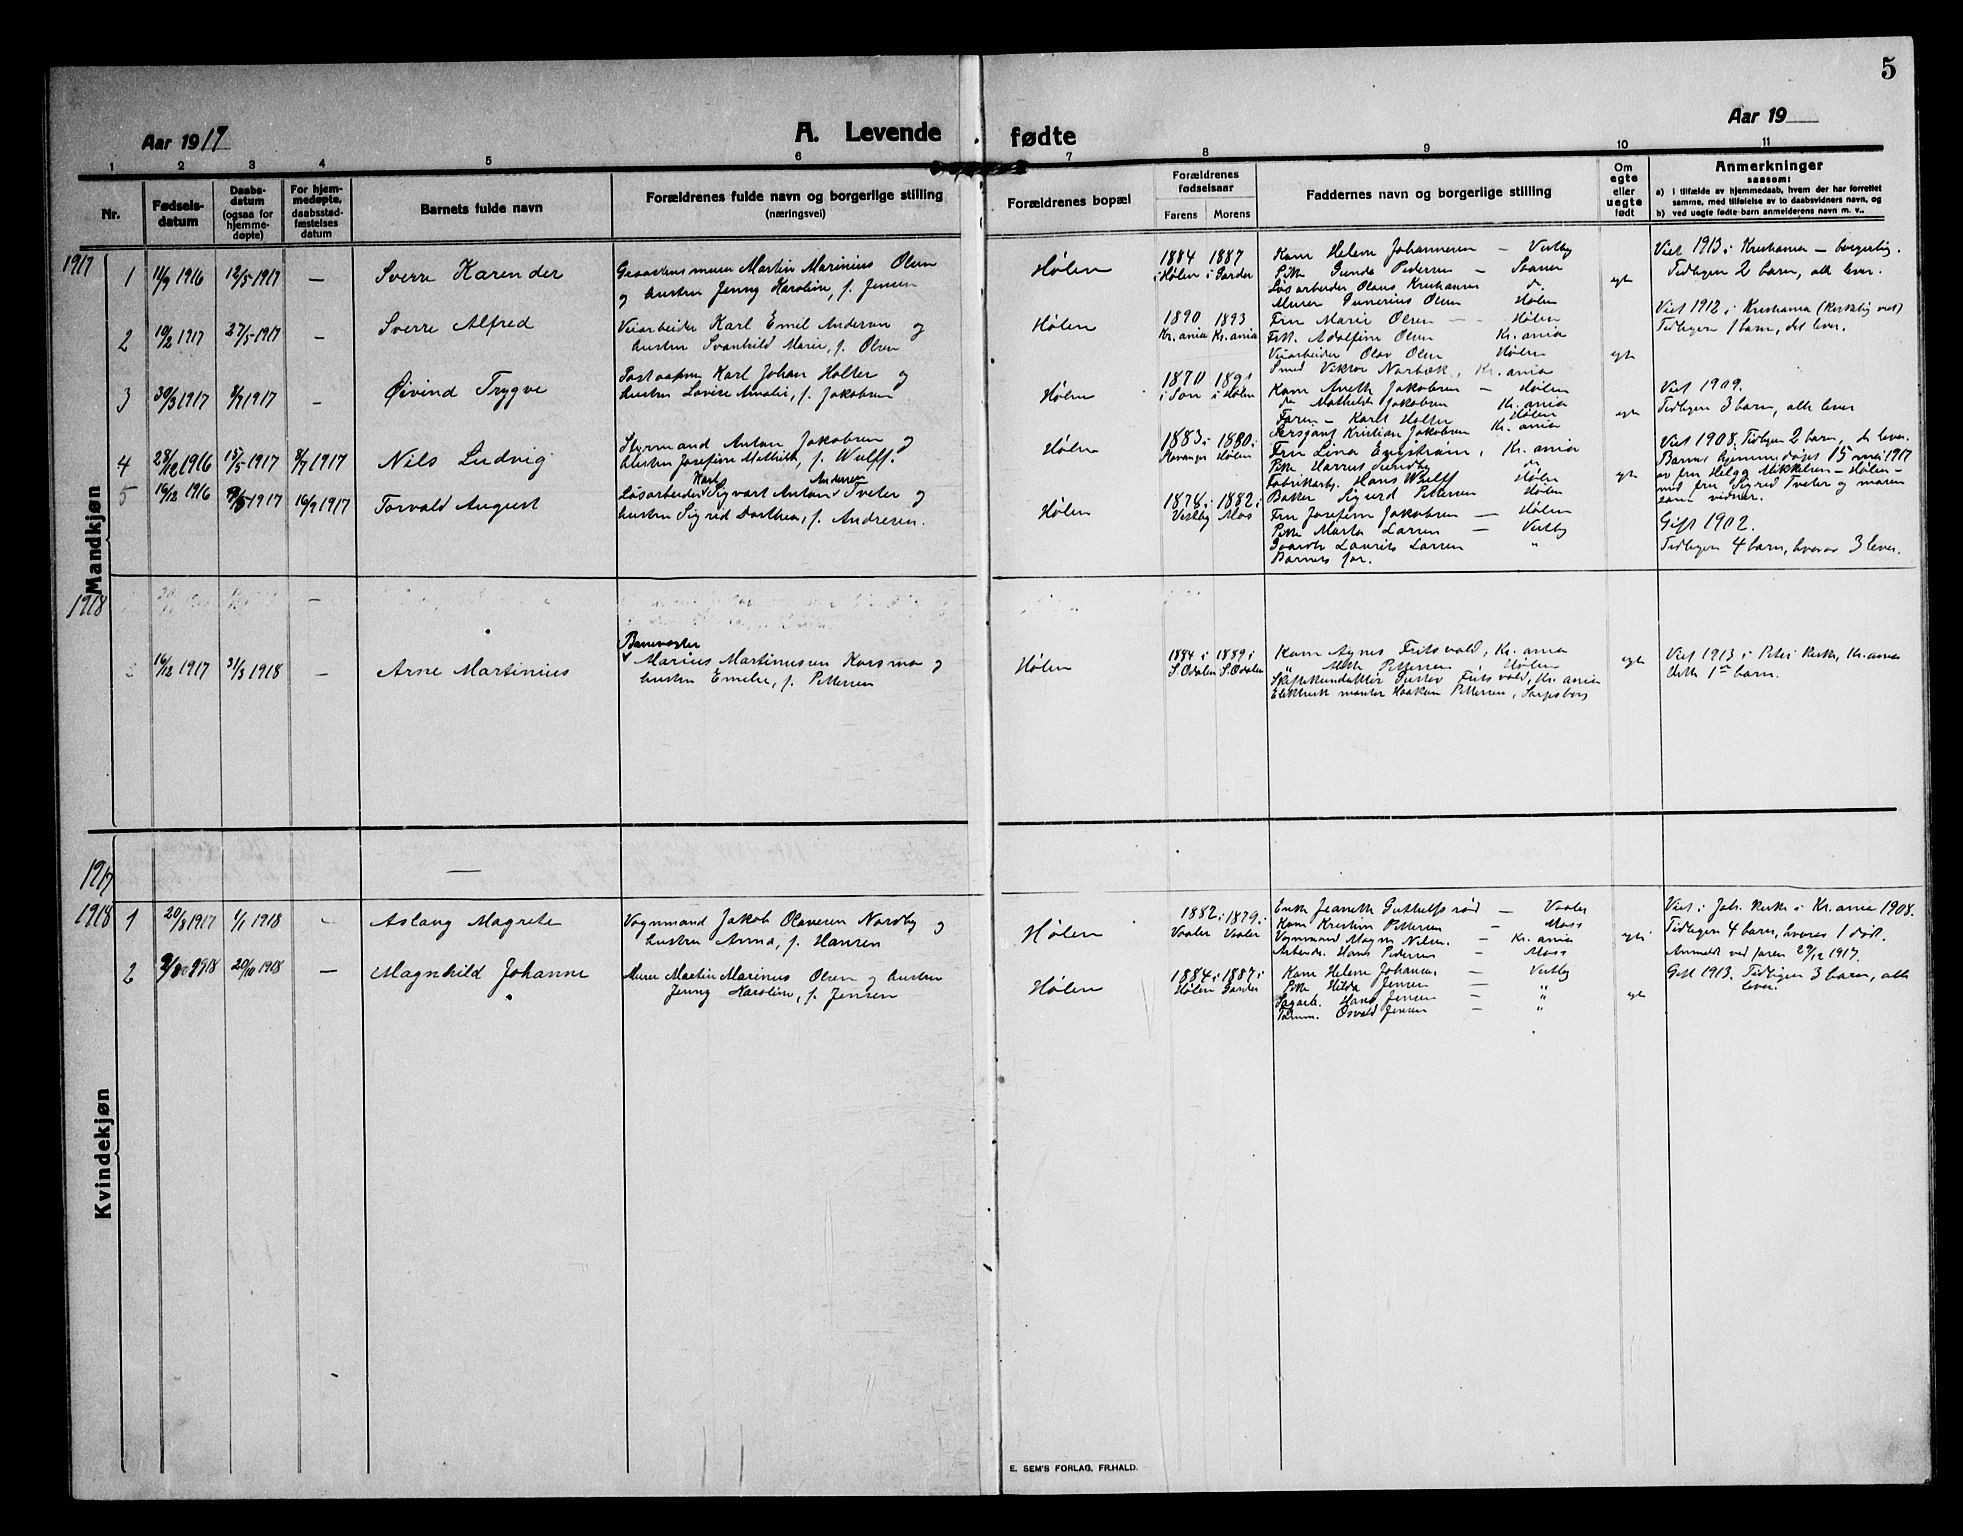 5
Aar 1917
A. Levende fødte
Aar 19
1 2 3 4 5 6 7 8 9 10 11
Nr.
Fødsels-
datum
Daabs-
datum
(ogsaa for
hjemme-
døpte)
For hjem-
medøpte,
daabsstad-
fæstelses
datum
Barnets fulde navn
Forældrenes fulde navn og borgerlige stilling
(næringsvei)
Forældrenes bopæl
Forældrenes
fødselsaar
Farens Morens
Faddernes navn og borgerlige stilling
Om
egte
eller
uegte
født
Anmerkninger
saasom:
a) i tilfælde av hjemmedaab, hvem der har forrettet
samme, med tilføielse av to daabsvidners navn, og
b) ved uegte fødte barn anmelderens navn m. v..
Mandkjøn
1917
1 11/9 1916 12/5 1917 — Sverre Karender
Martin Marinius Olsen
og hustru Jenny Karoline, f. Jensen
Hølen
1884 1887
i Hølen i Garder
Kone Helene Johannesen — Vestby
Pike Gunda Pedersen — Soner
Løsarbeider Olaus Kristiansen do
Murer Gunerius Olsen Hølen
egte
Viet 1913 i Kristiania — borgerlig.
Tidligere 2 barn, alle lever.
2 10/2 1917 27/5 1917 — Sverre Alfred
Veiarbeider Karl Emil Andersen og
hustru Svanhild Marie, f. Olsen
Hølen
1890 1893
Kr.ania Kr.ania
Fru Marie Olsen — Hølen
Frk. Adolfine Olsen Kr.ania
Veiarbeider Olav Olsen Hølen
Smed Viktor Norbæk, Kr.ania
egte
Viet 1912 i Kristiania (kirkelig viet)
Tidligere 1 barn, det lever.
3 30/3 1917 8/7 1917 — Øivind Trygve
Karl Johan Holter og
hustru Lovise Amalie, f. Jakobsen
Hølen
1870 1891
i Son i Hølen
Kone Anette Jakobsen — Hølen
do Mathilde Jakobsen Kr.ania
Faren — Karl Holter Hølen
Kristian Jakobsen Kr.ania
egte
Viet 1909.
Tidligere 3 barn, alle lever
4 28/12 1916 15/5 1917 8/7 1917 Nils Ludvig
Styrmand Anton Jakobsen og
hustru Josefine Mathilde, f. Wulff.
Hølen
1883 i 1880 i
Stavanger Hølen
Fru Lina Engstrøm, Kr.ania
Pike Harriet Sundby do
Fabrikarb. Hans Wulff Hølen
Baker Sigurd Pettersen Hølen
egte
Viet 1908. Tidligere 2 barn, de lever.
Barnet hjemmedøpt 15 mai 1917
av fru Helga Mikkelsen — Hølen —
med fru Sigrid Tveter og moren
som vidner.
5 16/12 1916 9/5 1917 16/9 1917 Torvald August
Karl Andersen
Løsarbeider Sigvart Anton Tveter og
hustru Sigrid Dorthea, f. Andresen.
Hølen
1878 i 1882 i
Vestby Mos
Fru Josefine Jakobsen — Hølen
Pike Marta Larsen — Vestby
Laurits Larsen "
Barnets far.
Gift 1902.
Tidligere 4 barn, hvorav 3 lever.
1918
16/12 1917 31/3 1918 — Arne Martinius
Banevogter
Marius Martinusen Korsmo og
hustru Emelie, f. Pettersen
Hølen
1884 i 1889 i
S. Odalen S. Odalen
Kone Agnes Fritsvold, Kr.ania
" Pettersen Hølen
Gustav Fritsvold, Kr.ania
Elektrisk montør Haakon Pettersen, Sarpsborg
egte
Viet 1913 i Petri kirke, Kr.ania
Dette 1ste barn.
Kvindekjøn
1917
—
1918
1 20/8 1917 1/1 1918 — Aslaug Magrete
Vognmand Jakob Olavesen Nordby og
hustru Anna, f. Hansen
Hølen
1882 i 1879 i
Vaaler Vaaler
Enke Jeanette Guthelfsrød — Vaaler
Kone Kristine Pettersen — Moss
Vognmand Magn. Nilsen — Kr.ania
Arbeider Hans Pedersen — Moss
egte
Viet i Joh. kirke i Kr.ania 1908.
Tidligere 4 barn, hvorav 1 død.
Anmeldt ved faren 29/12 1917.
2 20/10 1918 — Magnhild Johanne
Murer Martin Marinus Olsen og hustru
Jenny Karoline, f. Jensen
Hølen
1884 i 1887 i
Hølen Garder
Kone Helene Johansen — Vestby
Pike Hilda Jensen — "
Sagarb. Hans Jensen — "
Tømm. Osvald Jensen — "
egte
Gift 1913. Tidligere 3 barn, alle
lever.
E. SEM'S FORLAG, FR.HALD.